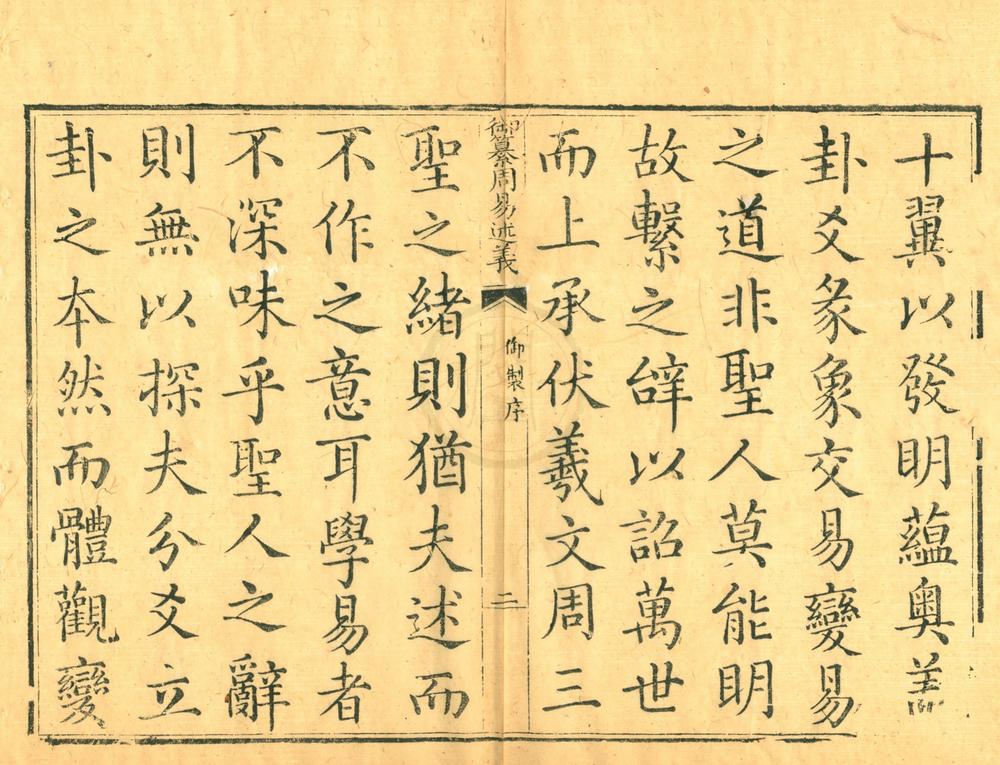 十翼以發明蘊奥盖
卦爻彖象交易變易
之道非聖人莫能明
故繫之辝以詔萬世
而上承伏羲文周三
御纂周易述義
御製序
二
聖之緒則猶夫述而
不作之意耳學易者
不深味乎聖人之辭
則無以探夫分爻立
卦之本然而體觀變